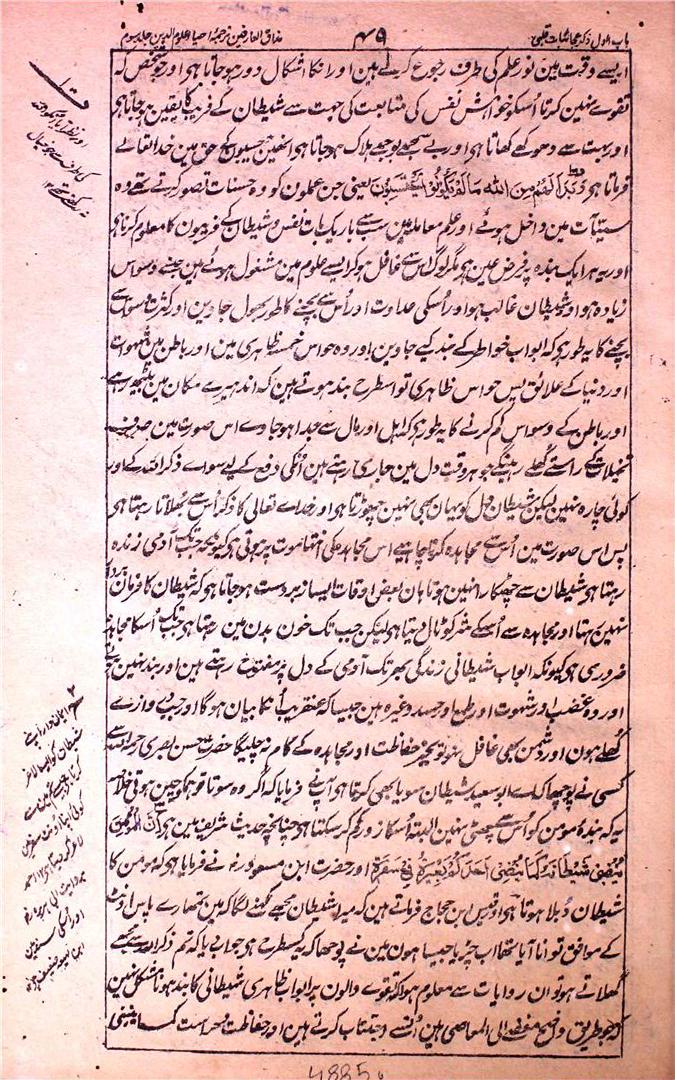 باب اول ذکر عجائبات قلبی
۴۵
مذاق العارفین ترجمۂ احیاء علوم الدین جلد سوم
ایسے وقت مین نور علم کی طرف رجوع کرتے ہین اور انکا اشکال دور ہو جاتا ہی اور جو شخص کہ
تقوے نہین کرتا اُسکو خواہش نفس کی متابعت کی جہت سے شیطان کے فریب کا یقین ہو جاتا ہی
اور بہت سے دھوکے کھاتا ہی اور بے سمجھے بوجھے ہلاک ہو جاتا ہی انھین جیسون کے حق مین خدا تعالے
فرماتا ہو وَبَدَا لَهُمْ مِنَ اللّٰهِ مَا لَمْ يَكُوْنُوْا يَحْتَسِبُوْنَ یعنی جن عملون کو وہ حسنات تصور کرتے تھے وہ
سیئات مین داخل ہوئے اور علم معاملہ مین سب سے باریک بات نفس و شیطان کے فریبون کا معلوم کرنا ہی
اور یہ ہر ایک بندہ پر فرض عین ہی مگر لوگ اس سے غافل ہو کر ایسے علوم مین مشغول ہوئے ہین جنسے وسواس
زیادہ ہو اور شیطان غالب ہو اور اُسکی عداوت اور اُس سے بچنے کا طور بھول جاوین اور کثرت وسواس سے
بچنے کا یہ طور ہی کہ ابواب خواطر کے بند کیے جاوین اور وہ حواس خمسہ ظاہری مین اور باطن مین شہوات
اور دنیا کے علائق پس حواس ظاہری تو اسطرح بند ہوتے ہین کہ اندھیرے مکان مین بیٹھ رہے
اور باطن کے وسواس کم کرنے کا یہ طور ہی کہ اہل اور مال سے جدا ہو جاوے اس صورت مین صرف
تخیلات کے راستے کھلے رہینگے جو ہر وقت دل مین جاری رہتے ہین اُنکی دفع کے لیے سواے ذکر اللہ کے اور
کوئی چارہ نہین لیکن شیطان دل کو یہان بھی نہین چھوڑتا ہی اور خداے تعالی کا ذکر اُس سے بھلاتا رہتا ہی
پس اس صورت مین اُس سے مجاہدہ کرنا چاہیے اس مجاہدہ کی انتہا موت پر ہوتی ہی کیونکہ جب تک آدمی زندہ
رہتا ہی شیطان سے چھٹکارا نہین ہوتا ہان بعض اوقات ایسا زبردست ہو جاتا ہی کہ شیطان کا فرمان بردار
نہین رہتا اور مجاہدہ سے اُسکے شر کو ٹال دیتا ہی لیکن جب تک خون بدن مین رہتا ہی جب تک اُسکا مجاہدہ
ضروری ہو کیونکہ ابواب شیطانی زندگی بھر تک آدمی کے دل پر مفتوح رہتے ہین اور بند نہین ہوتے
اور وہ غضب اور شہوت اور طمع اور حسد وغیرہ ہین جیسا کہ عنقریب اُنکا بیان ہوگا اور جب دروازے
کھلے ہون اور دشمن بھی غافل نہو تو بجز حفاظت اور مجاہدہ کے کام نہ چلیگا حضرت حسن بصری رحمہ اللہ سے
کسی نے پوچھا کہ اے ابو سعید شیطان سویا بھی کرتا ہی آپنے فرمایا کہ اگر وہ سوتا تو ہمکو چین ہوتی خلاصہ
یہ کہ بندۂ مومن کو اُس سے چھٹی نہین البتہ اُسکا زور کم کر سکتا ہو چنانچہ حدیث شریف مین ہی اِنَّ الْمُؤْمِنَ
يُنْضِيْ شَيْطَانَهٗ كَمَا يُنْضِيْ اَحَدُكُمْ بَعِيْرَهٗ فِيْ سَفَرِهٖ اور حضرت ابن مسعود رض نے فرمایا ہی کہ مومن کا
شیطان دُبلا ہوتا ہو اور قیس ابن حجاج فرماتے ہین کہ میرا شیطان مجھسے کہنے لگا کہ مین تمھارے پاس اونٹ
کے موافق توانا آیا تھا اب چڑیا جیسا ہون مین نے پوچھا کہ یہ کسطرح ہو جواب دیا کہ تم ذکر اللہ سے مجھے
گھلاتے ہو ان روایات سے معلوم ہوا کہ تقوے والون پر ابواب ظاہری شیطانی کا بند ہونا مشکل نہین
کہ جو طریق واضح مفضے الی المعاصی ہین اُنسے اجتناب کرتے ہین اور حفاظت و حراست کے
48850